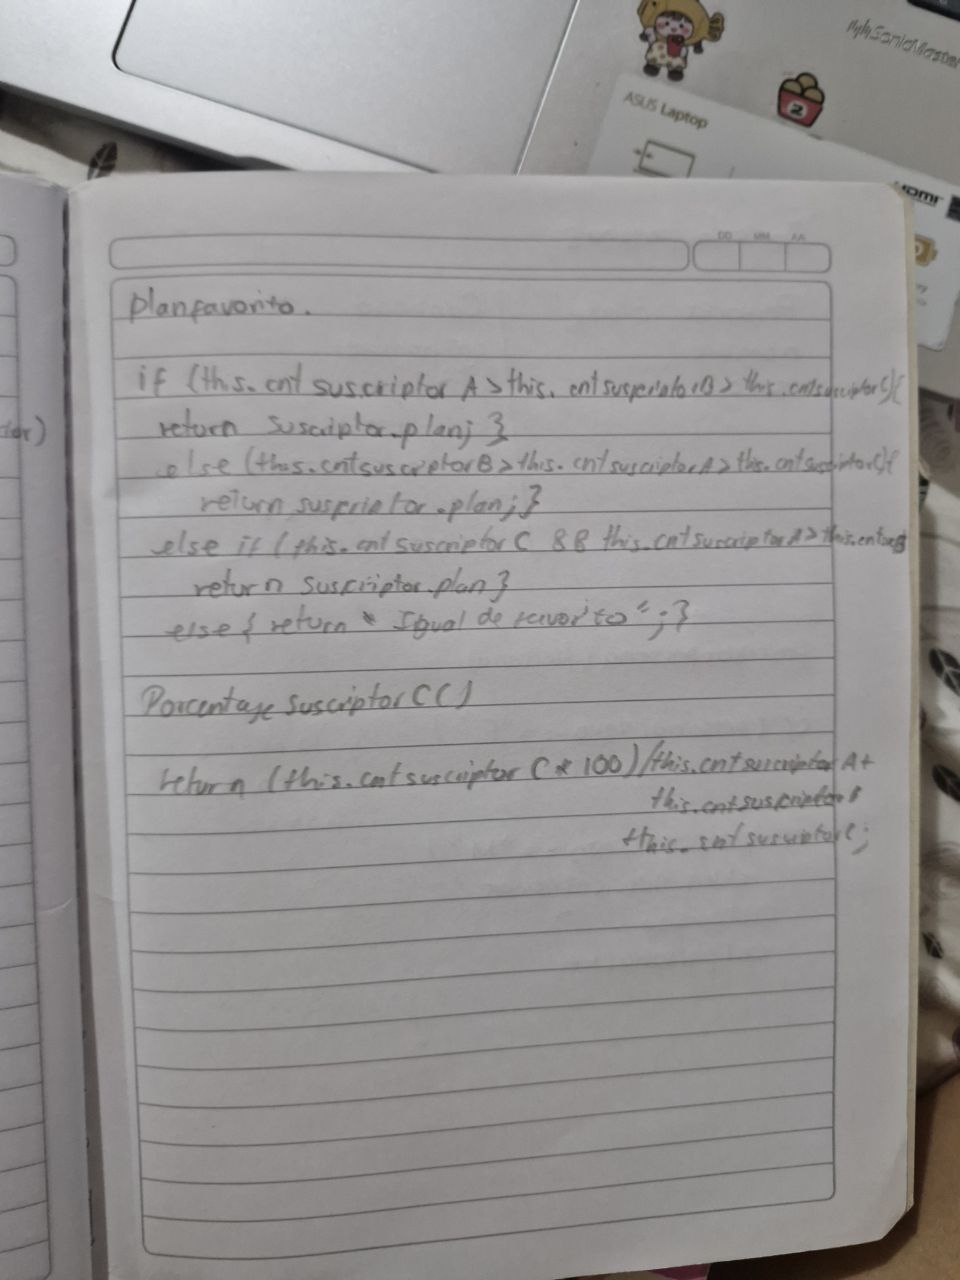 MySonicMaster
2
ASUS Laptop
HDMI
DD MM AA
planfavorito.
if (this.cnt suscriptor A > this. cnt suscriptor B > this.cntsuscriptor C){
return suscriptor.plan; }
else (this.cntsuscriptor B > this. cntsuscriptor A > this.cntsuscriptor C){
return suscriptor.plan; }
else if (this.cnt suscriptor C && this.cntsuscriptor A > this.cntsusB
return suscriptor.plan }
else { return " Igual de favorito" ; }
Porcentaje suscriptor C ( )
return (this.cnt suscriptor C * 100) / this.cnt suscriptor A +
this.cnt suscriptor B
this. cnt suscriptor C ;